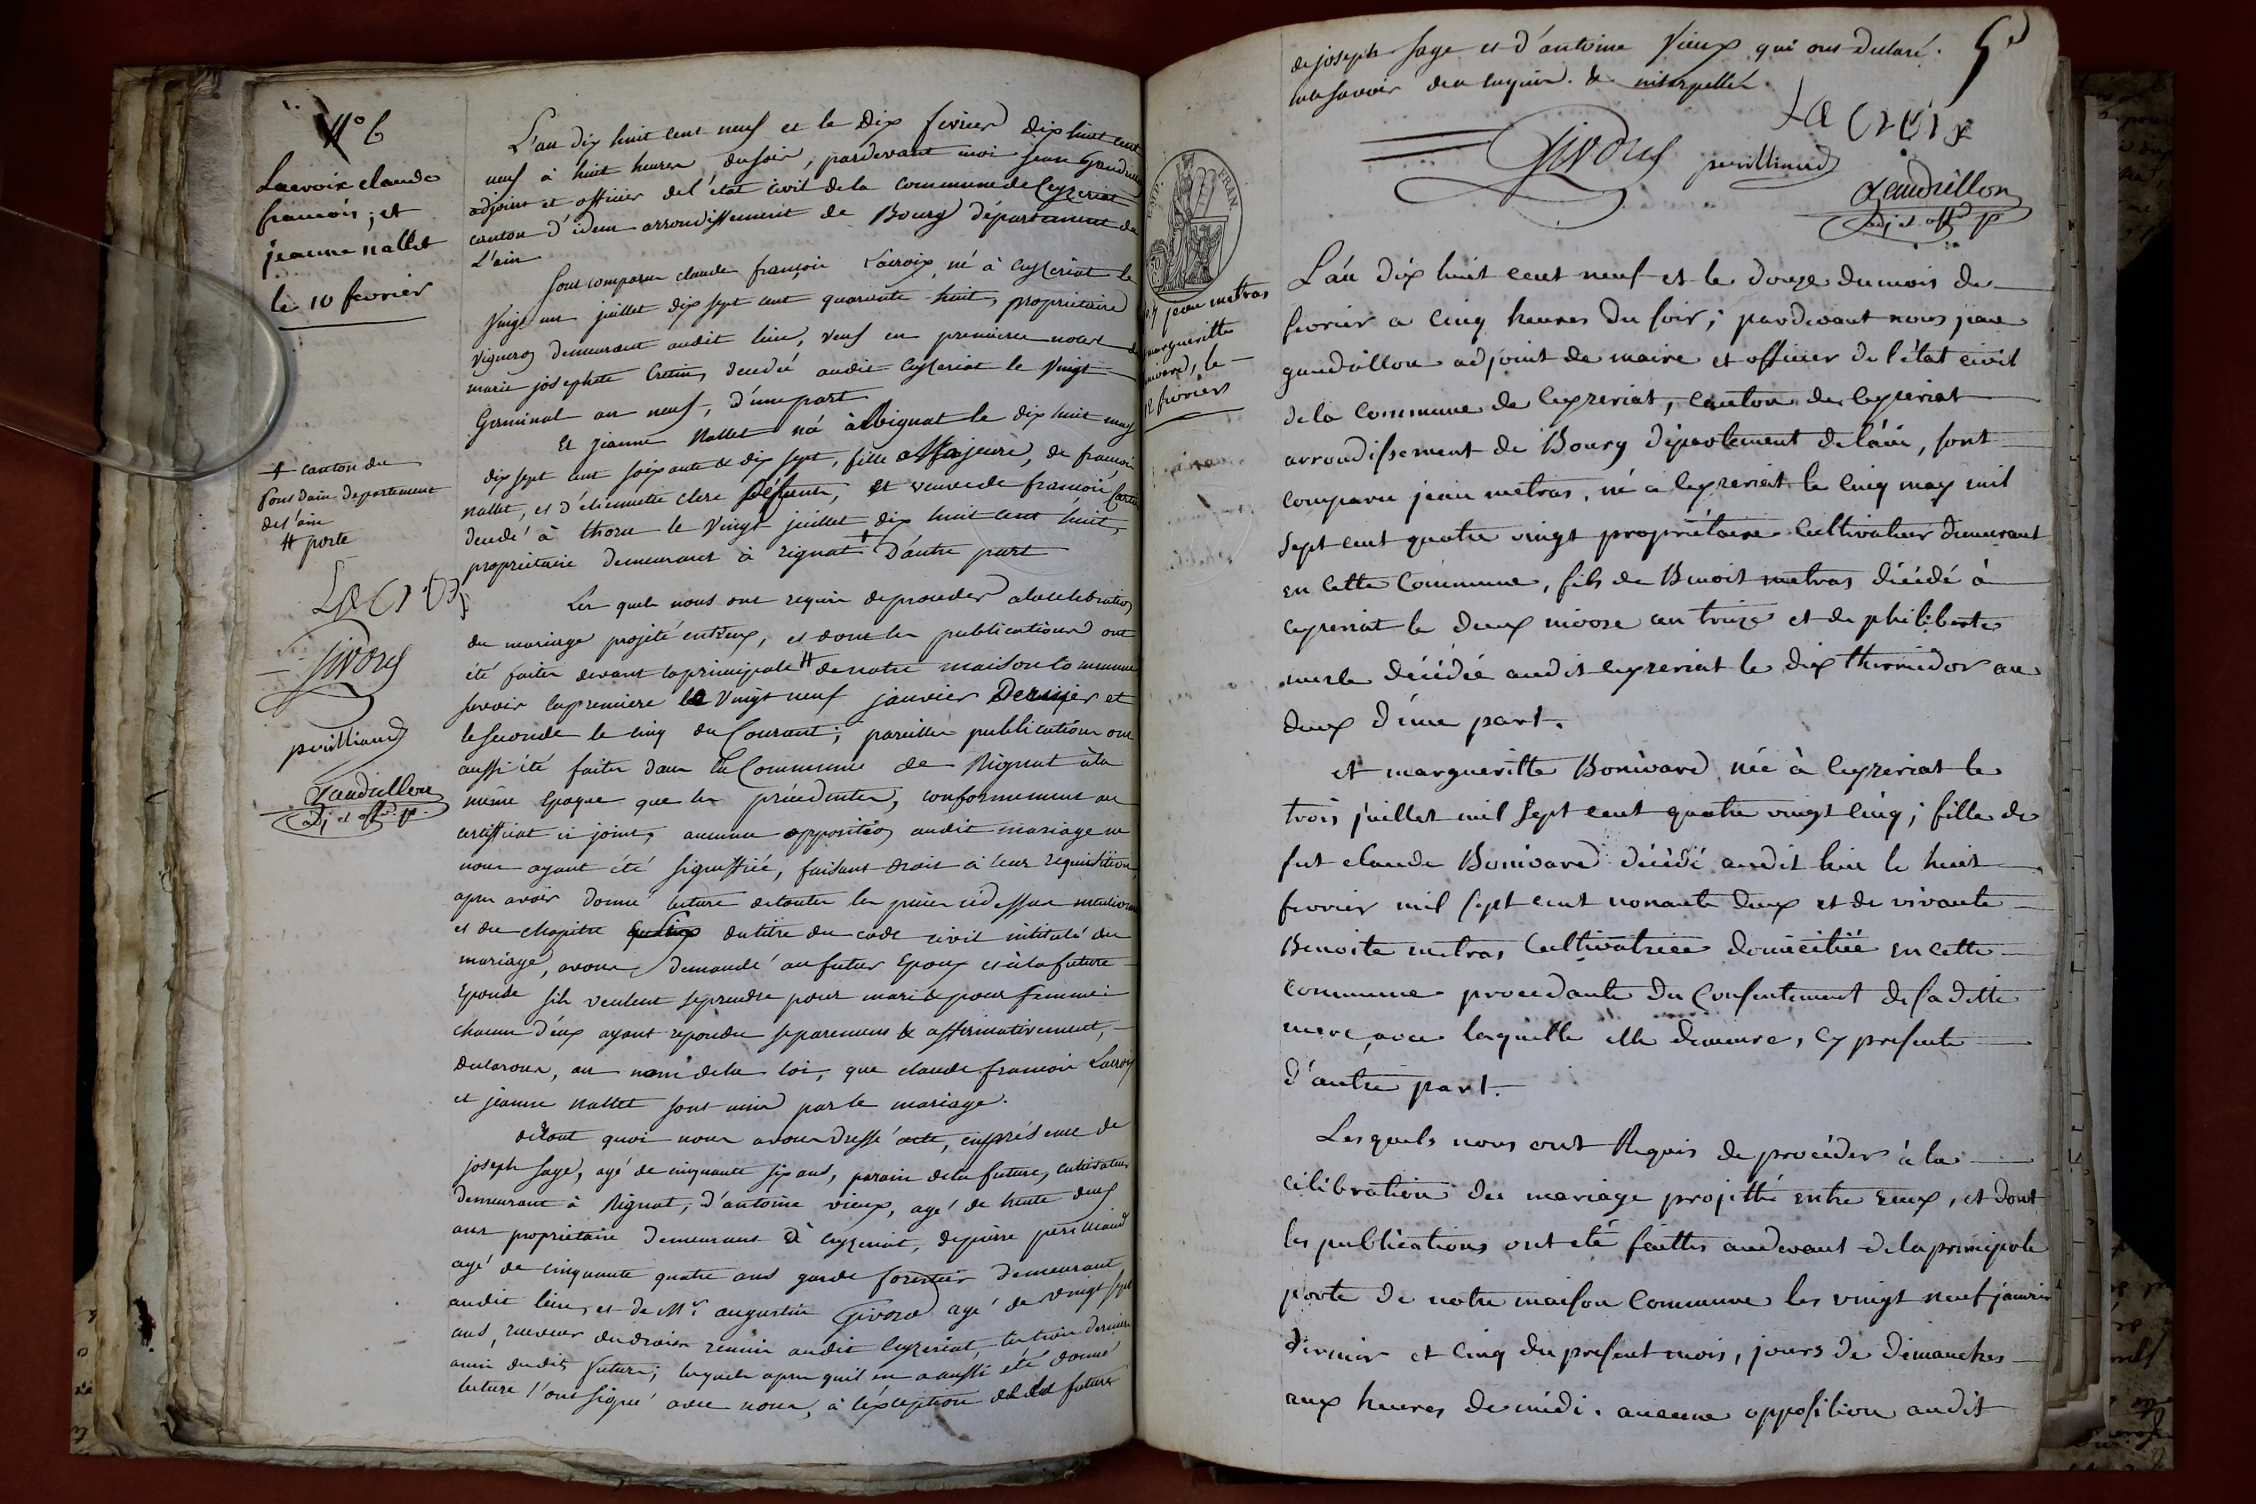 N° 6
Lacroix claude
francois, et
jeanne nallet
le 10 fevrier
L'an dix huit cent neuf et le dix fevrier dix huit cent
neuf à huit heures du soir, pardevant moi jean Gaudrillon
adjoint et officier de l'état civil de la commune de Ceyzeriat
canton d'idem arrondissement de Bourg département de
L'ain
Sont comparu claude francois Lacroix, né à ceyzeriat le
vingt un juillet dix sept cent quarante huit, propriétaire
vigneron demeurant audit lieu, veuf en premiere noces de
marie josephete Cretin, decedé audit ceyzeriat le vingt
Germinal an neuf, d'une part
Et jeanne Nallet né à le dix huit may
dix sept cent soixante & dix sept, fille Majeure, de francois
nallet, et d'étiennette clerc deffunts, et veuve de francois
decedé à thoru le vingt juillet dix huit cent huit,
propriétaire demeurant à rignat + d'autre part
+ canton de
Pont dain departement
de l'ain
# porte
Les quels nous ont requis de proceder a la celebration
du mariage projeté entr'eux, et dont les publications ont
été faites devant la principale # de notre maison commune
savoir la premiere le vingt neuf janvier Dernier et
la seconde le cinq du Courant; pareilles publications ont
aussi été faites dans la Commune de Rignat à la
même Epoque que les précédentes, conformement au
certifficat ci joint, aucune opposition audit mariage ne
nous ayant été signiffiée, faisant droit à leur requisition
apres avoir donné lecture de toutes les pieces cidessus mentionnées
et du chapitre du titre du code civil intitulé du
mariage, avons demandé au futur Epoux et à la future
Epouse sils veulent seprendre pour mari & pour femme:
chacun d'eux ayant repondu separement & affirmativement,
declarons, au nom de la loi, que claude francois Lacroix
et jeanne nallet sont unis par le mariage.
de tout quoi nous avons dressé acte, en présence de
joseph sage, agé de cinquante six ans, parain de la future, cultivateur
demeurant à Rignat, d'antoine vieux, agé de trente deux
ans propriétaire demeurant à ceyzeriat, de pierre perilliaud
agé de cinquante quatre ans garde forestier demeurant
audit lieu, et de Mr augustin Givord agé de vingt sept
ans, receveur des droits reunis audit Ceyzeriat, les trois derniers
amis dudit futur; lesquels apres quil en a aussi été donné
lecture l'ont signé avec nous, à l'éxception de la future
Lacroix
Givord
perilliaud
Gaudrillon
adj et offr. p.
5e
de joseph sage et d'antoine vieux qui ont declaré
ne savoir de ce enquis & interpellés.
Lacroix
Givord perilliaud
Gaudrillon
adj et offr p
EMP. FRAN.
N 7 jean metras
margueritte
Bonivard, le
12 fevrier
L'an dix huit cent neuf et le douze du mois de
fevrier a cinq heures du soir; pardevant nous jean
gaudrillon adjoint de maire et officier de l'état civil
de la commune de Ceyzeriat, canton de Ceyzeriat
arrondissement de Bourg département de l'ain, sont
comparu jean metras, né a ceyzeriat le cinq may mil
sept cent quatre vingt propriétaire Cultivateur demeurant
en cette Commune, fils de Benoit metras décédé à
ceyzeriat le deux nivose an treize et de philiberte
merle décédée audit ceyzeriat le dix thermidor an
deux d'une part.
et marguerïtte Bonivard née à Ceyzeriat le
trois juillet mil sept cent quatre vingt cinq; fille de
fut claude Bonivard décédé audit lieu le huit
fevrier mil sept cent nonante deux et de vivante
Benoite metras Cultivatrice domiciliée en cette
commune procedante du Consentement de sa ditte
mere, avec laquelle elle demeure, cy presente
d'autre part.
Lesquels nous ont Requis de procéder à la
célébration du mariage projetté entre eux, et dont
les publications ont eté faittes audevant de la principale
porte de notre maison Commune les vingt neuf janvier
dernier et Cinq du present mois, jours de dimanches
aux heures de midi. aucune opposition audit